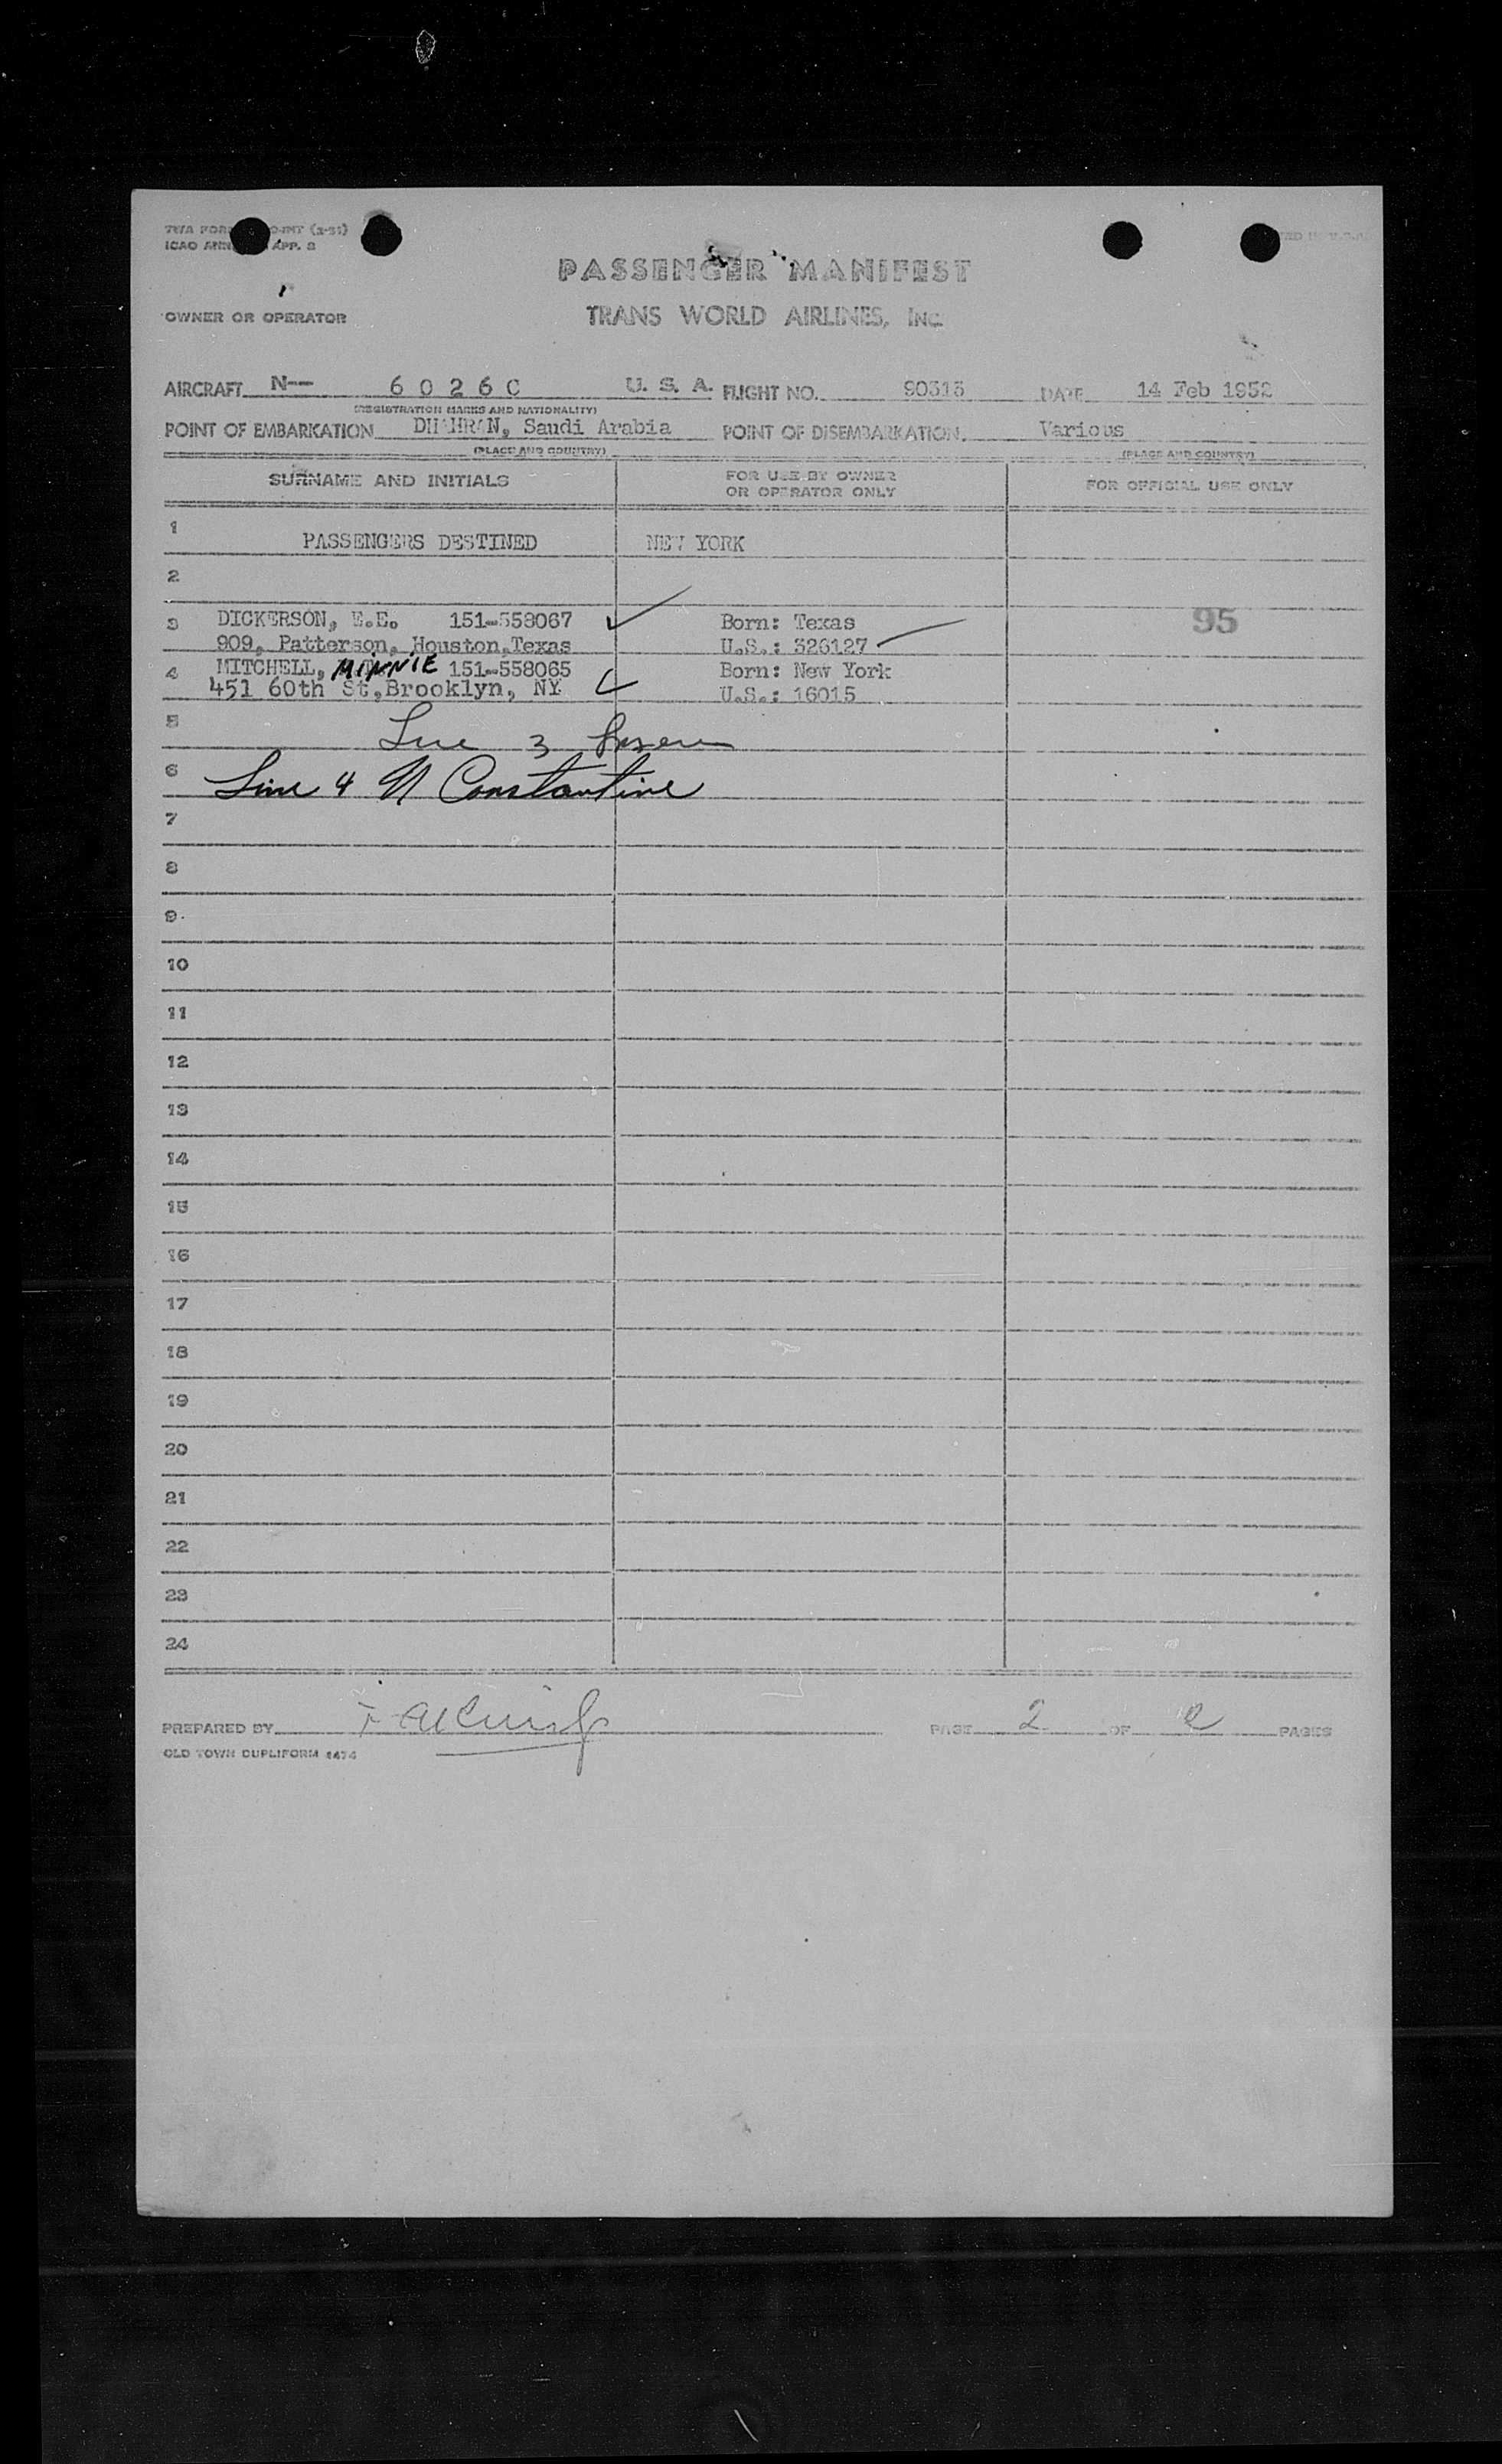 TWA FORM
ICAO ANN APP. 8
PASSENGER MANIFEST
OWNER OR OPERATOR TRANS WORLD AIRLINES, INC.
AIRCRAFT N-- 6 0 2 6 C U. S. A. FLIGHT NO. 90315 DATE 14 Feb 1952
(REGISTRATION MARKS AND NATIONALITY)
POINT OF EMBARKATION DHAHRAN, Saudi Arabia POINT OF DISEMBARKATION Various
(PLACE AND COUNTRY) (PLACE AND COUNTRY)
SURNAME AND INITIALS FOR USE BY OWNER OR OPERATOR ONLY FOR OFFICIAL USE ONLY
1 PASSENGERS DESTINED NEW YORK
2
3 DICKERSON, E.E. 151-558067 Born: Texas 95
909, Patterson, Houston,Texas U.S.: 326127
4 MITCHELL, MINNIE 151-558065 Born: New York
451 60th St,Brooklyn, NY U.S.: 16015
5 Line 3
6 Line 4 N Constantine
7
8
9
10
11
12
13
14
15
16
17
18
19
20
21
22
23
24
PREPARED BY PAGE 2 OF 2 PAGES
OLD TOWN DUPLIFORM 4474